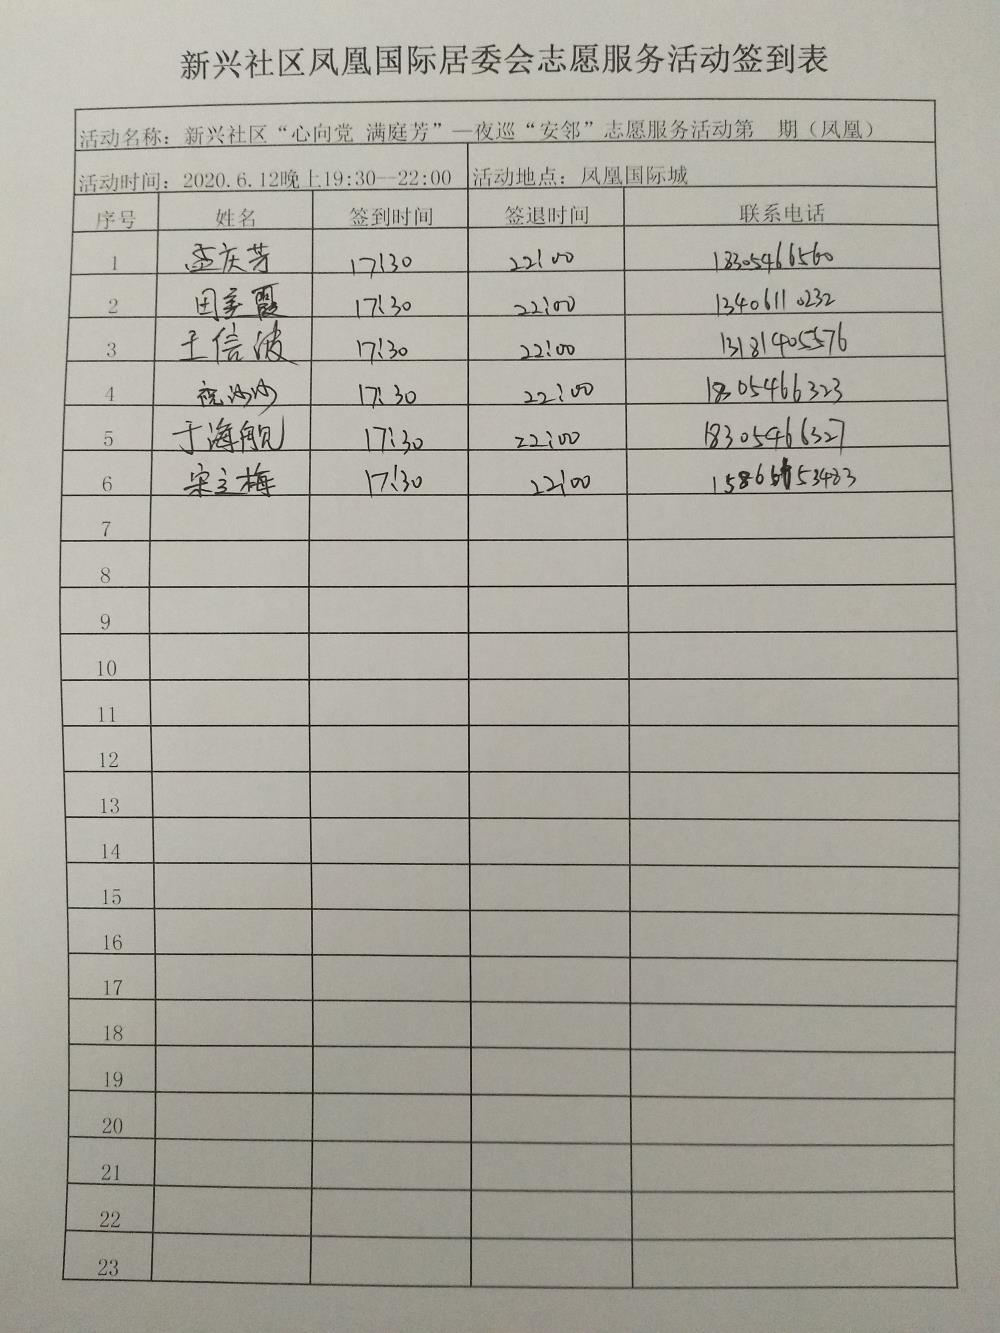 新兴社区凤凰国际居委会志愿服务活动签到表
活动名称：新兴社区“心向党 满庭芳”—夜巡“安邻”志愿服务活动第　期（凤凰）
活动时间：2020.6.12晚上19:30--22:00 活动地点：凤凰国际城
序号 姓名 签到时间 签退时间 联系电话
1 孟庆芳 17:30 22:00 18305466560
2 田 霞 17:30 22:00 13406110232
3 王信波 17:30 22:00 13181405576
4 祝沙沙 17:30 22:00 18305466323
5 于海舰 17:30 22:00 18305466327
6 宋立梅 17:30 22:00
7
8
9
10
11
12
13
14
15
16
17
18
19
20
21
22
23